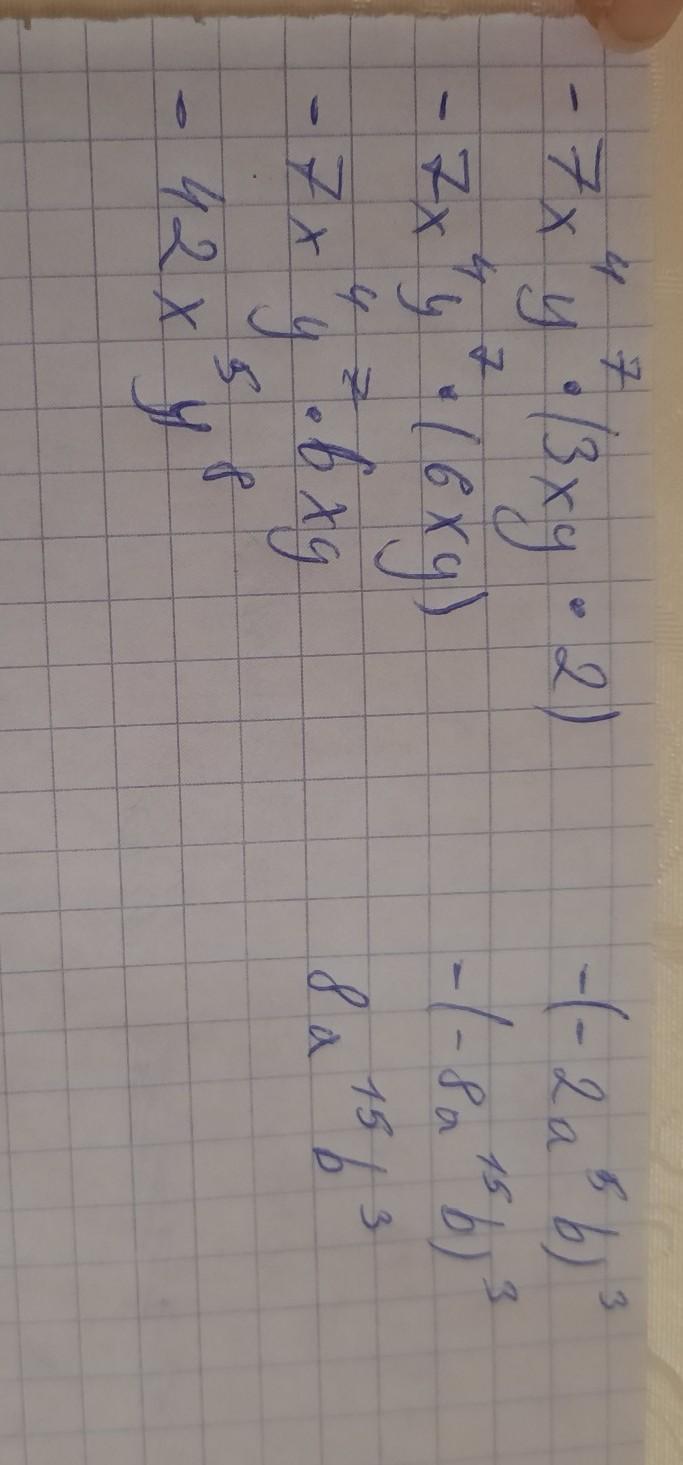 - 7x⁴y⁷ · (3xy · 2)
- 7x⁴y⁷ · (6xy)
- 7x⁴y⁷ · 6xy
- 42x⁵y⁸
-(-2a⁵b)³
-(-8a¹⁵b)³
8a¹⁵b³